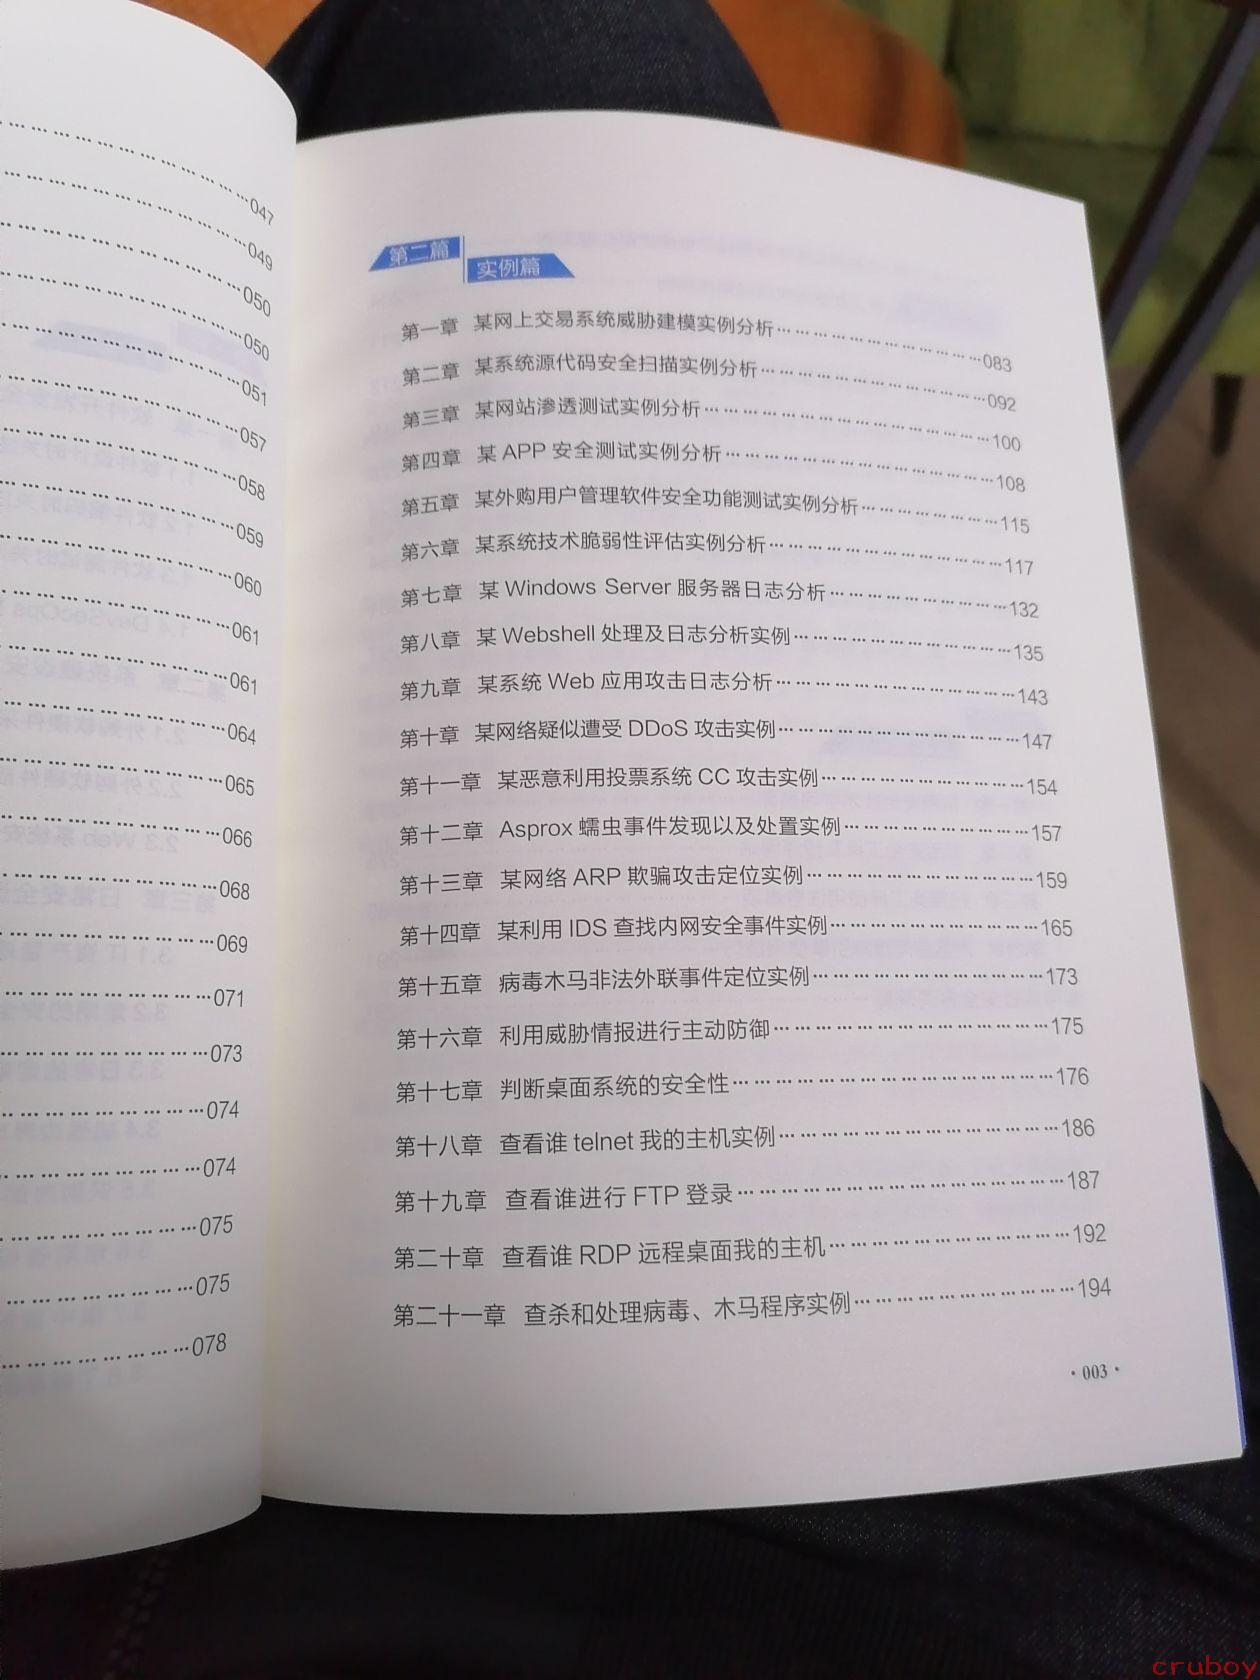 047
049
050
050
051
057
058
059
060
061
061
064
065
066
068
069
071
073
074
074
075
075
078
第二篇
实例篇
第一章 某网上交易系统威胁建模实例分析……………………………083
第二章 某系统源代码安全扫描实例分析……………………………092
第三章 某网站渗透测试实例分析……………………………100
第四章 某 APP 安全测试实例分析……………………………108
第五章 某外购用户管理软件安全功能测试实例分析……………………115
第六章 某系统技术脆弱性评估实例分析……………………………117
第七章 某 Windows Server 服务器日志分析……………………………132
第八章 某 Webshell 处理及日志分析实例……………………………135
第九章 某系统 Web 应用攻击日志分析……………………………143
第十章 某网络疑似遭受 DDoS 攻击实例……………………………147
第十一章 某恶意利用投票系统 CC 攻击实例……………………………154
第十二章 Asprox 蠕虫事件发现以及处置实例……………………………157
第十三章 某网络 ARP 欺骗攻击定位实例……………………………159
第十四章 某利用 IDS 查找内网安全事件实例……………………………165
第十五章 病毒木马非法外联事件定位实例……………………………173
第十六章 利用威胁情报进行主动防御……………………………175
第十七章 判断桌面系统的安全性……………………………176
第十八章 查看谁 telnet 我的主机实例……………………………186
第十九章 查看谁进行 FTP 登录……………………………187
第二十章 查看谁 RDP 远程桌面我的主机……………………………192
第二十一章 查杀和处理病毒、木马程序实例……………………………194
·003·
cruboy